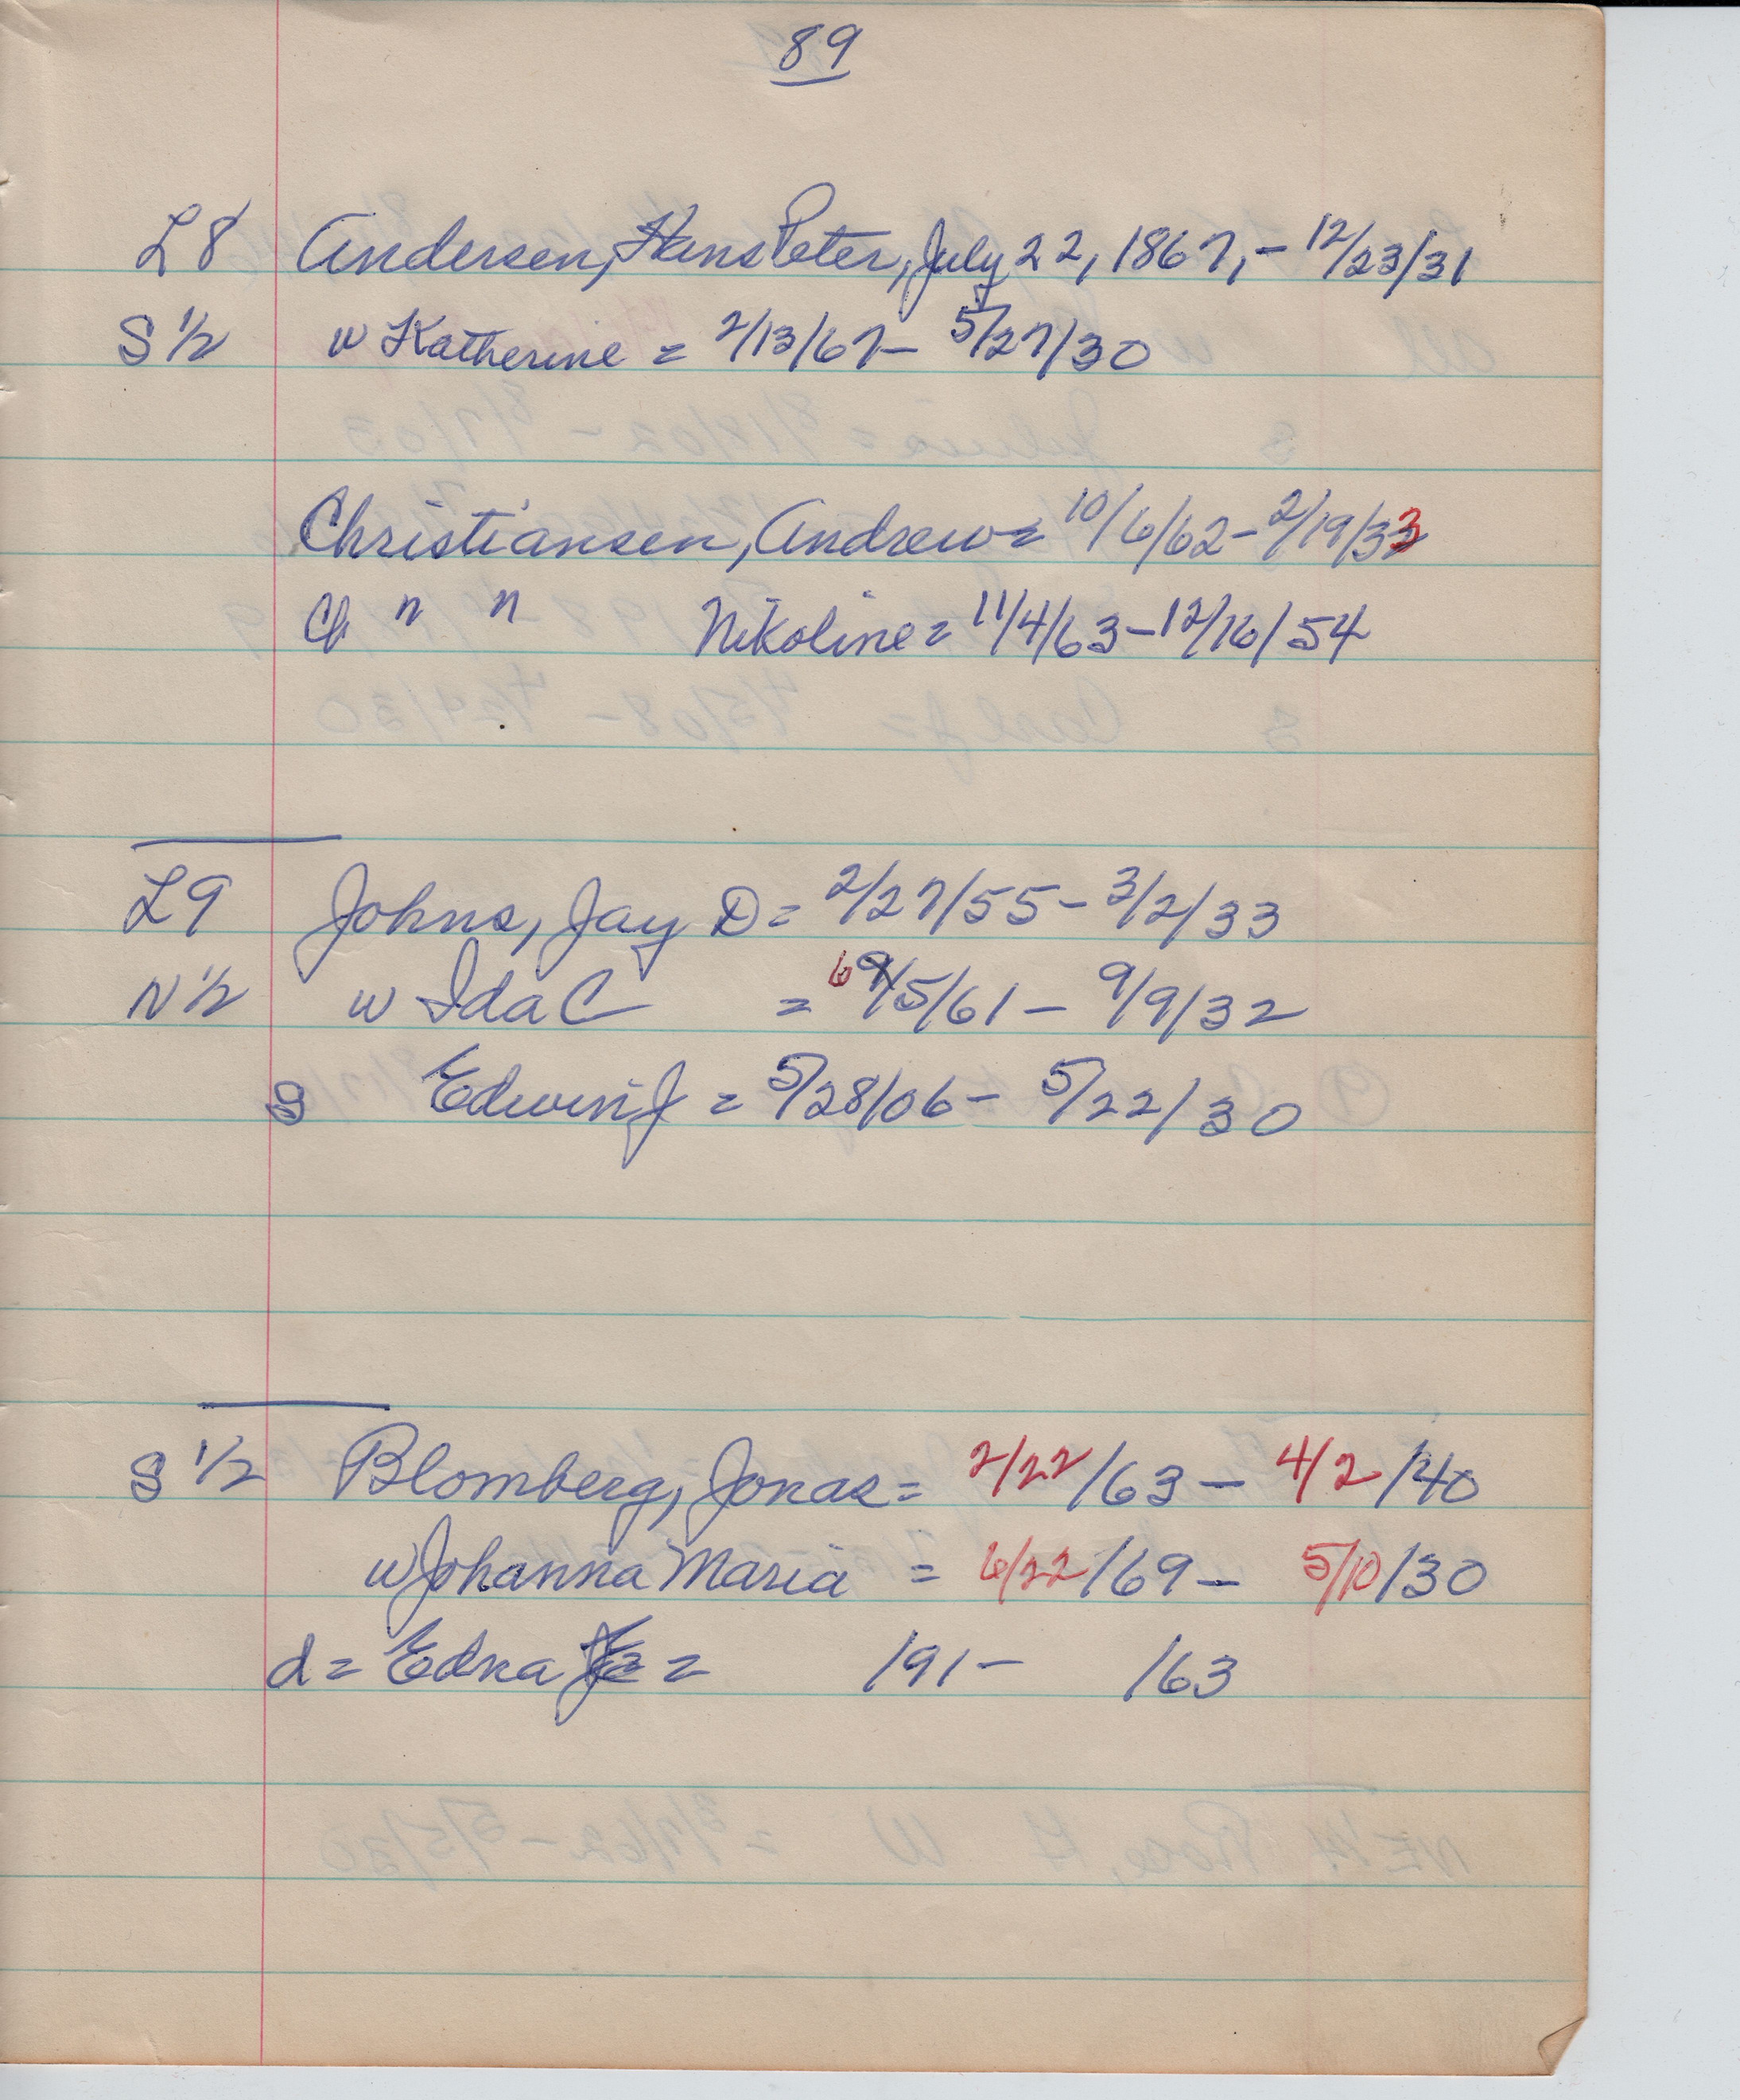 89
L8 Andersen, Hans Peter, July 22, 1867, - 12/23/31
S 1/2 w Katherine = 2/13/67 - 5/27/30
Christiansen, Andrew = 10/6/62 - 2/19/33
Ch " " Nikoline = 11/4/63 - 12/16/54
L9 Johns, Jay D = 2/27/55 - 3/2/33
N 1/2 w Ida C = 6/5/61 - 9/9/32
s Edwin J = 5/28/06 - 5/22/30
S 1/2 Blomberg, Jonas = 2/22/63 - 4/2/40
w Johanna Maria = 6/22/69 - 5/10/30
d = Edna E = /91 - /63